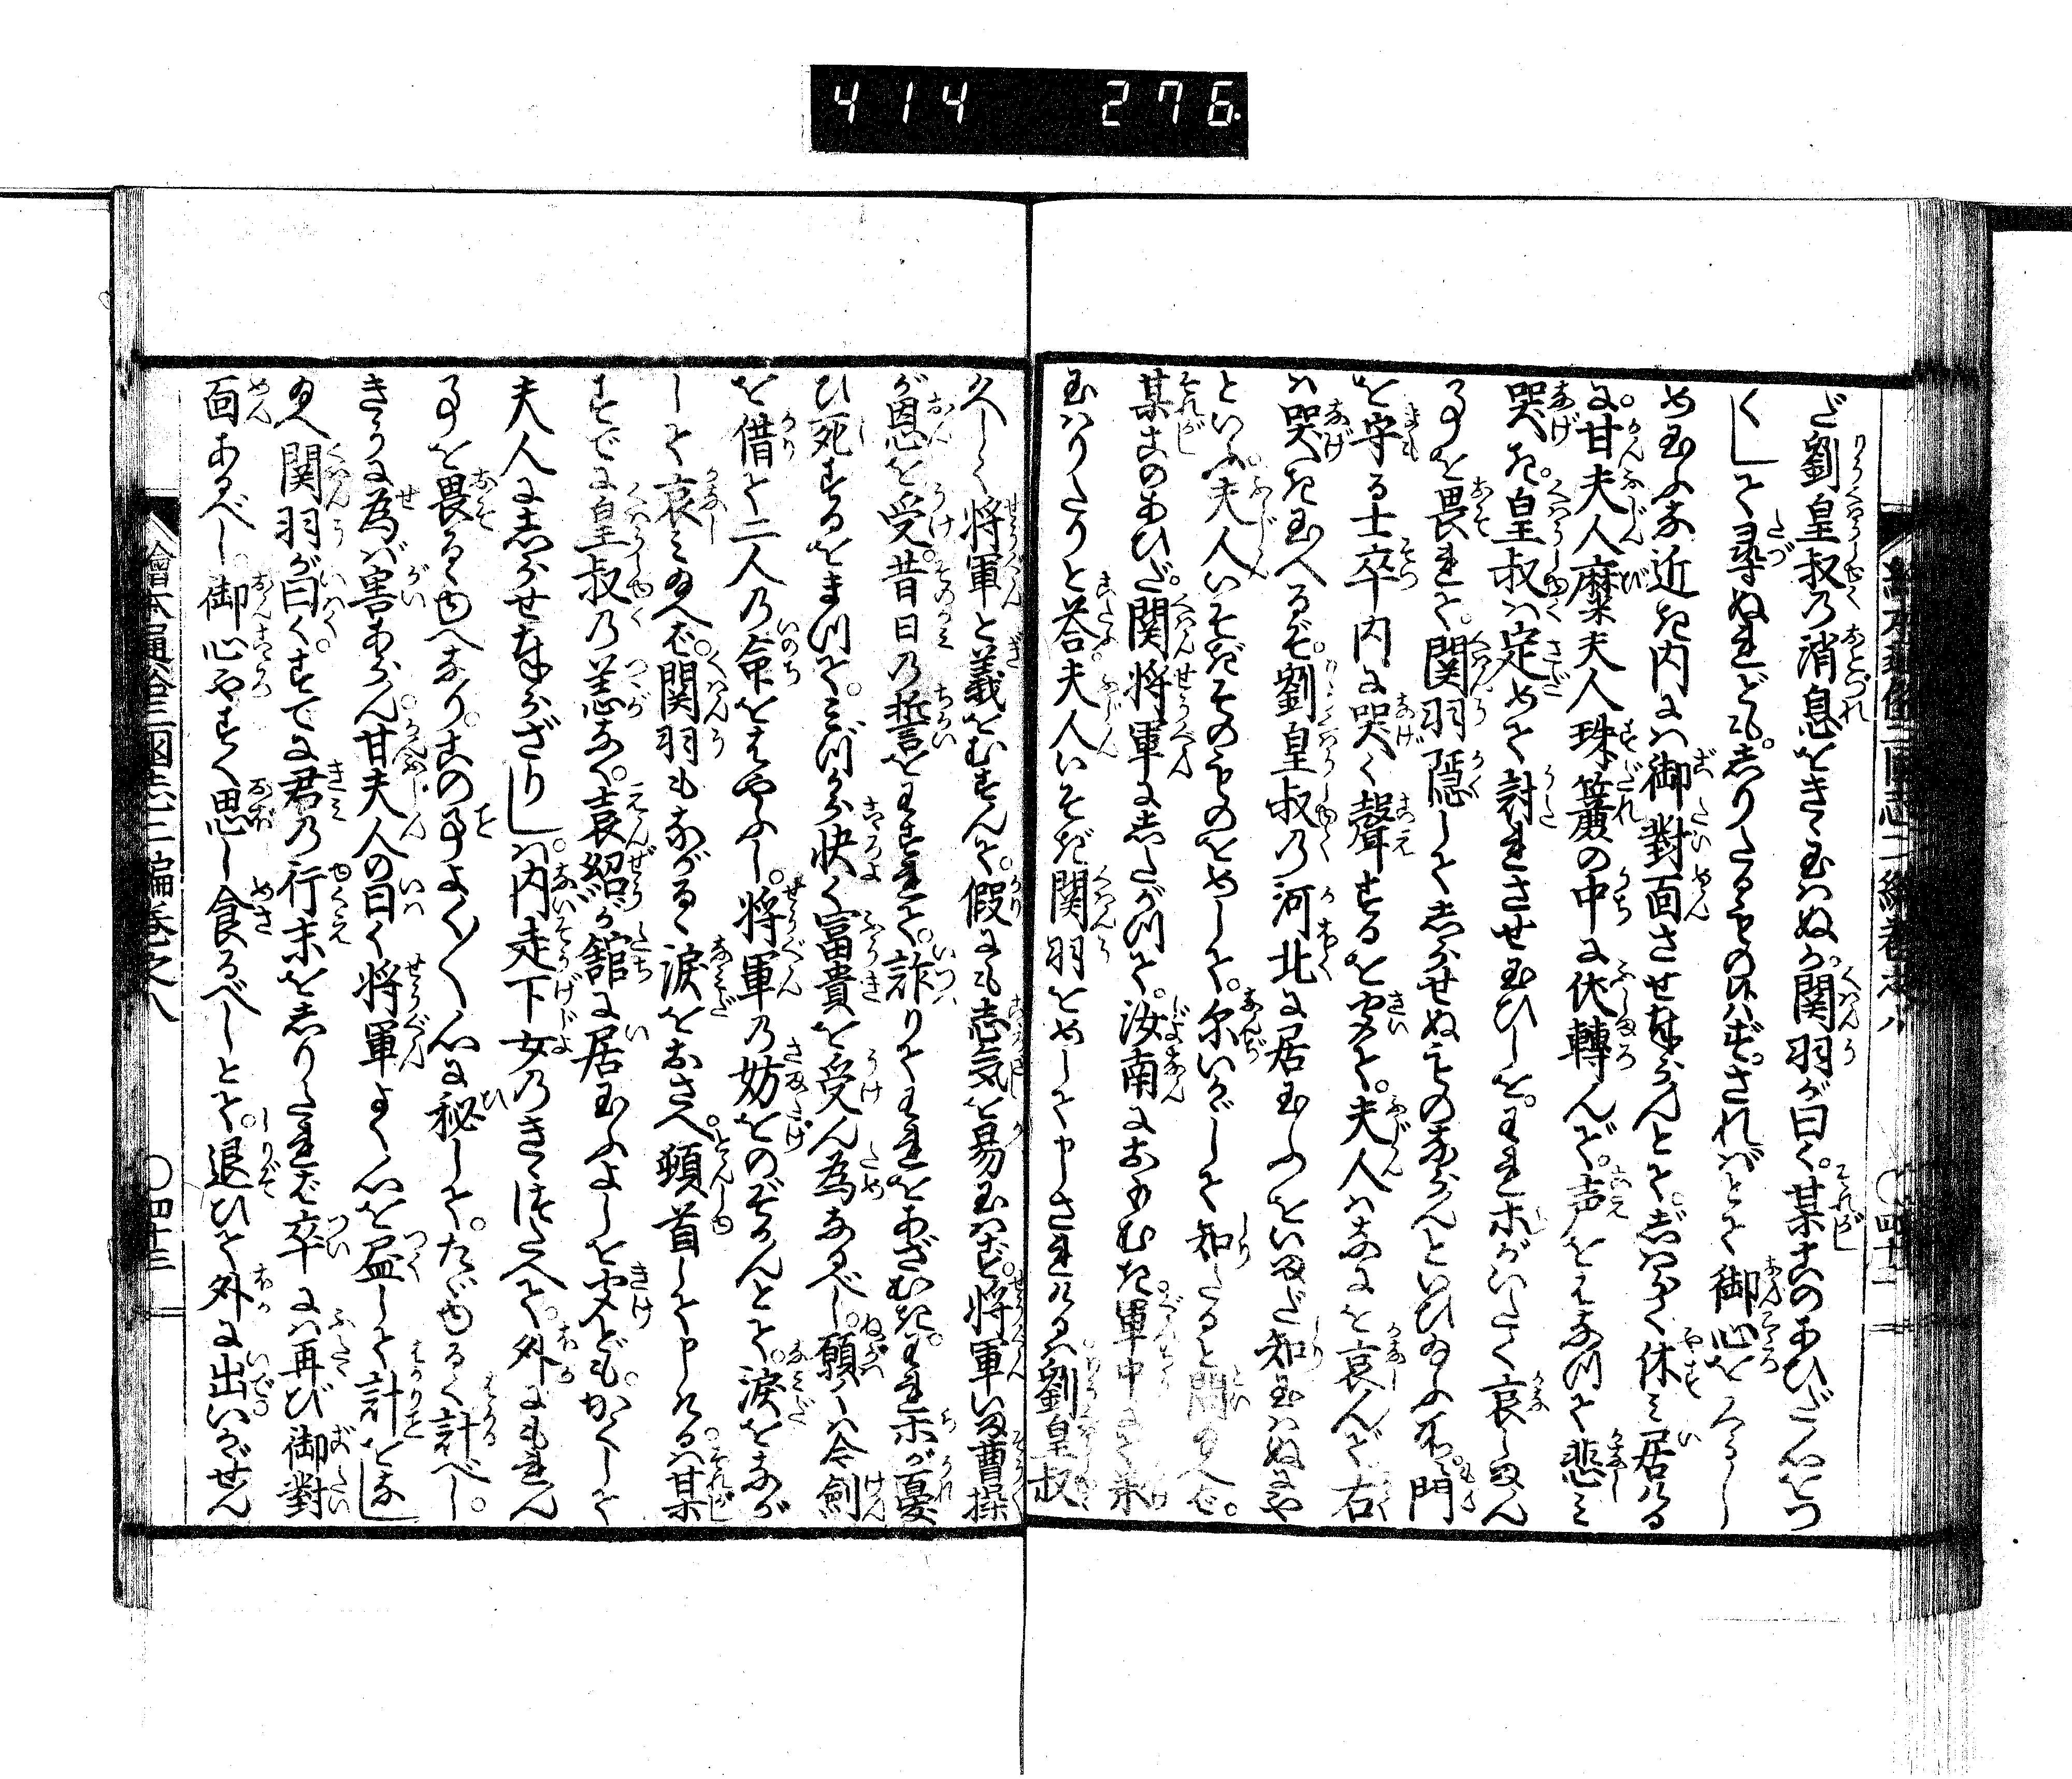 414 276
だ劉皇叔の消息をきゝ玉はぬか。関羽が曰く。某このあひだ心をつ
くして尋ぬれども。しりたるものなし。さればとて御心をくるし
め玉ふな近き内には御對面させ奉らんとて。しばらく休み居ける
に。甘夫人糜夫人珠簾の中に伏轉んで。声をはなつて悲み
哭き。皇叔は定めて討れさせ玉ひしを。われホがいたく哀しまん
事を畏れて。関羽隠してしらせぬものならんといひ玉ふ所。門
を守る士卒内に哭く聲するを聞て。夫人はなにを哀んで
哭き玉へるぞ。劉皇叔の河北に居玉ふをいまだ知玉はぬにや
といふ。夫人いそぎそのものをめして。尓いかゞして知たると問玉へば。
某このあひだ。関将軍にしたがつて。汝南におもむき。軍中にて承
玉はりたりと答ふ。夫人いそぎ関羽をめして申されけるは劉皇叔
久しく将軍と義をむすんで。假にも志気を易玉はず。将軍いま曹操
が恩を受。昔日の誓をわすれて。詐りてわれをあざむき。われホが憂
ひ死するをまつて。みづから快く富貴を受ん為なるべし。願くは今劍
を借て二人の命をはやふし。将軍の妨をのぞかんとて。涙をなが
して哀み玉へば。関羽もながるゝ涙をおさへ。頓首して申けるは。某
すでに皇叔の恙なく。袁紹が舘に居玉ふよしを聞けども。かくして
夫人にしらせ奉らざりしは。内走下女のきゝ傳へて。外にもれん
事を畏るゝゆへなり。この事よく〳〵心に秘して。たゞゆるく計べし。
きうに為ば害あらん。甘夫人の曰く将軍よく心を盡して計をなし
玉へ関羽が曰く。すでに君の行末をしりたれば卒には再び御對
面あるべし。御心やすく思し食るべしとて。退ひて外に出いかゞせん
繪本通俗三國志二編巻之八
〇四十三